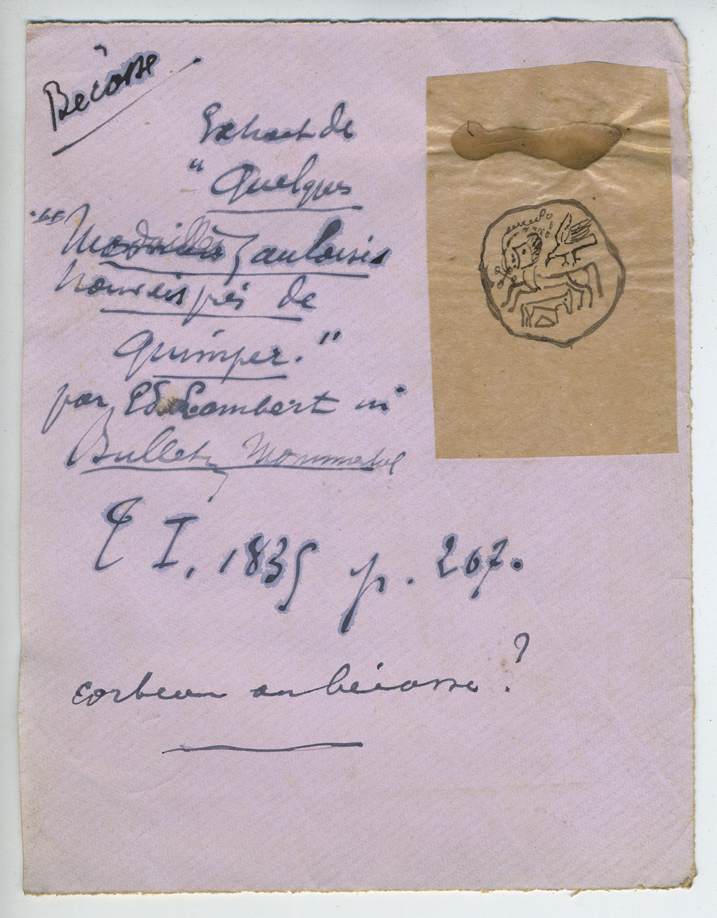 Bécasse
Extrait de
"Quelques
"Médailles gauloises
trouvées près de
Quimper."
par Ed. Lambert in
Bulletin Monumental
T I, 1835 p. 267.
corbeau ou bécasse ?